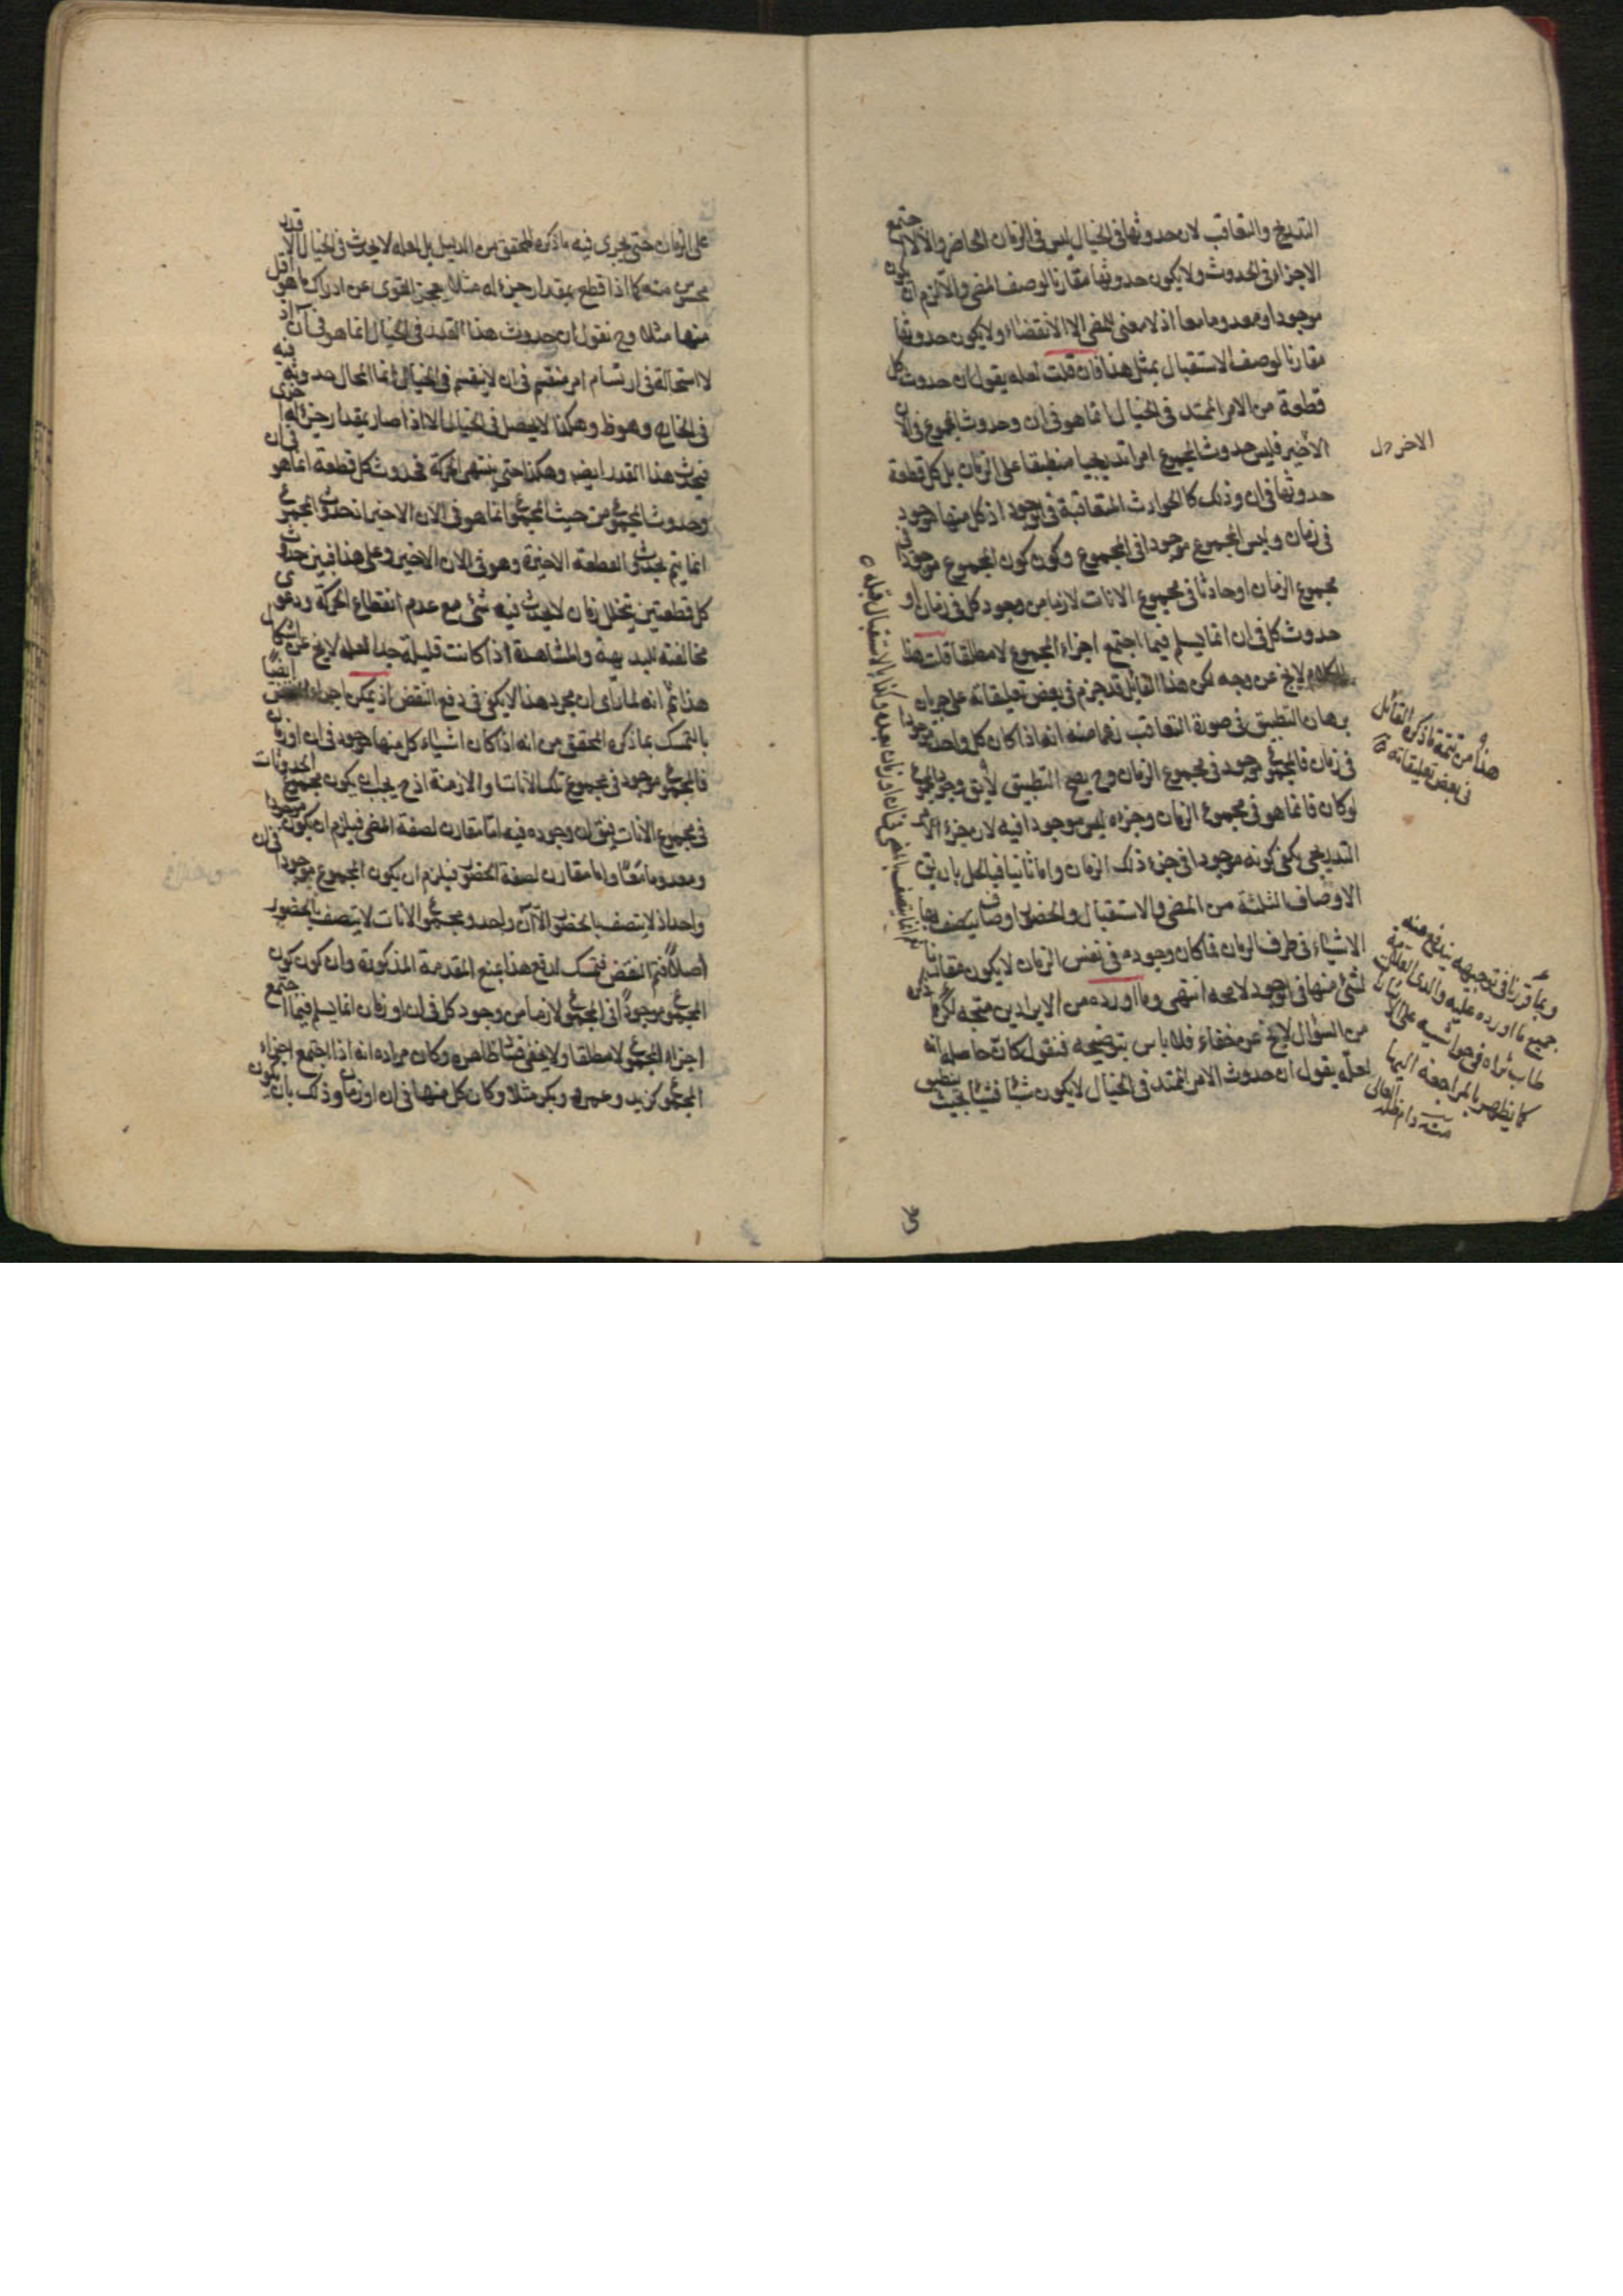 التدريج والتعاقب لان حدوثها في الخيال ليس في الزمان الحاضر والا لاجتمع
الاجزاء في الحدوث ولا يكون حدوثها مقارنا لوصف المضي والا لزم ان يكون
موجودا ومعدوما معا اذ لا معنى للمضي الا الانقضاء ولا يكون حدوثها
مقارنا لوصف الاستقبال بمثل هذا فان قلت لعله يقول ان حدوث كل
قطعة من الامر الممتد في الخيال انما هو في ان وحدوث المجموع في الان
الاخير فليس حدوث المجموع امرا تدريجيا منطبقا على الزمان بل كل قطعة
حدوثها في ان وذلك كالحوادث المتعاقبة في الوجود اذ كل منها موجود
في زمان وليس المجموع موجودا في المجموع وكون كون المجموع موجودا في
مجموع الزمان او حادثا في مجموع الانات لازما من وجود كل في زمان او
حدوث كل في ان انما يسلم فيما اجتمع اجزاء المجموع لا مطلقا قلت هذا
الكلام لا يخ عن وجه لكن هذا القائل قد جزم في بعض تعليقاته على جريان
برهان التطبيق في صورة التعاقب زعما منه انه اذا كان كل واحد موجودا
في زمان فالمجموع موجود في مجموع الزمان وح يصح التطبيق لا يق وجود المجموع
لو كان فانما هو في مجموع الزمان وجزءه ليس موجودا فيه لان جزء الامر
التدريجي يكفي كونه موجودا في جزء ذلك الزمان واما ثانيا فبالحل بان يق
الاوصاف الثلثة من المضي والاستقبال والحضور اوصاف يتصف بها
الاشياء في طرف الزمان فما كان وجوده في نفس الزمان لا يكون مقارنا
لشئ منها في الوجود لا محه انتهى وما اورده من الايرادين متجه لكن ما ذكره
من السؤال لا يخ عن خفاء فلا باس بتوضيحه فنقول كان حاصله انه
لعله يقول ان حدوث الامر الممتد في الخيال لا يكون شيئا فشيئا بحيث ينطبق
الاخر دل
هذا من تتمة ما ذكره القائل
في بعض تعليقاته
وبما قررنا في توجيهه يندفع عنه
جميع ما اورده عليه والدي العلامة
طاب ثراه في حواشيه على
كما يظهر بالمراجعة اليها
منه دام ظله العالي
على الزمان حتى يجري فيه ما ذكره المحقق من الدليل بل لعله لا يحدث في الخيال الا قدر
محسوس منه كما اذا قطع بمقدار جزء له مثلا يعجز القوى عن ادراك ما هو اقل
منها مثلا وح نقول ان حدوث هذا القدر في الخيال انما هو في آن اذ
لا استحالة في ارتسام امر منقسم في ان لا ينقسم في الخيال انما المحال حدوثه فيه
في الخارج وهو ظ وهكذا لا يحصل في الخيال الا اذا صار بمقدار جزء له اخرى
فيحدث هذا القدر ايضا وهكذا حتى ينتهي الحركة فحدوث كل قطعة انما هو في ان
وحدوث المجموع من حيث المجموع انما هو في الان الاخير اذ حدوث المجموع
انما يتم بحدوث القطعة الاخيرة وهو في الان الاخير وعلى هذا فبين حدوث
كل قطعتين يتخلل زمان لا يحدث فيه شئ مع عدم انقطاع الحركة ودعوى
مخالفته للبديهة والمشاهدة اذا كانت قليلة جدا لعله لا يخ عن اشكال
هذا ثم انه لما راى ان مجرد هذا لا يكفي في دفع النقض اذ يمكن اجراء ايضا
بالتمسك بما ذكره المحقق من انه اذا كان اشياء كل منها موجود في ان او زمان
فالمجموع موجود في مجموع تلك الانات او الازمنة اذ ح يجب ان يكون مجموع الحدوثات
في مجموع الانات فيق ان وجوده فيه اما مقارن لصفة المضي فيلزم ان يكون موجودا
ومعدوما معا واما مقارن لصفة الحضور فيلزم ان يكون المجموع موجودا في ان
واحد اذ لا يتصف بالحضور الا آن واحد ومجموع الانات لا يتصف بالحضور
اصلا فيتم النقض فتمسك لدفع هذا بمنع المقدمة المذكورة وان كون كون
المجموع موجودا في المجموع لازما من وجود كل في ان او زمان انما يسلم فيما اجتمع
اجزاء المجموع لا مطلقا ولا يخفى فساد ظاهره وكان مراده انه اذا اجتمع اجزاء
المجموع كزيد وعمرو وبكر مثلا وكان كل منها في ان او زمان وذلك بان يكون